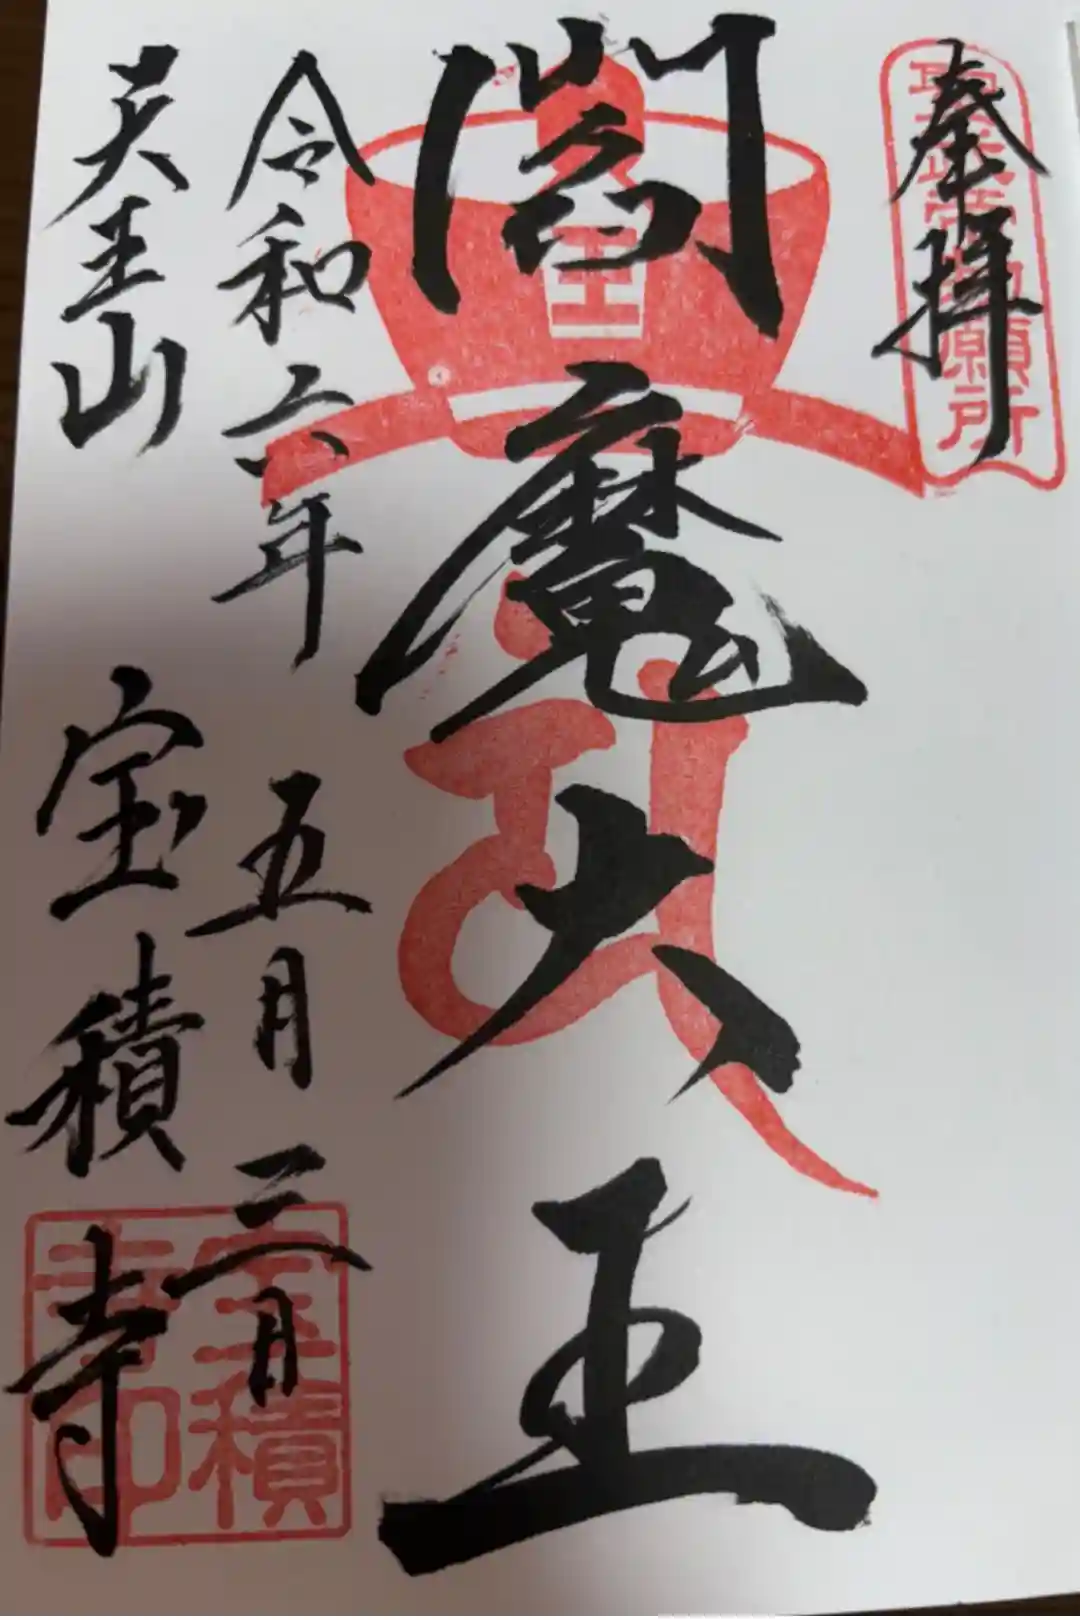 奉拝
聖武帝勅願所
閻魔大王
王
令和六年 五月三日
天王山 宝積寺
宝積寺印